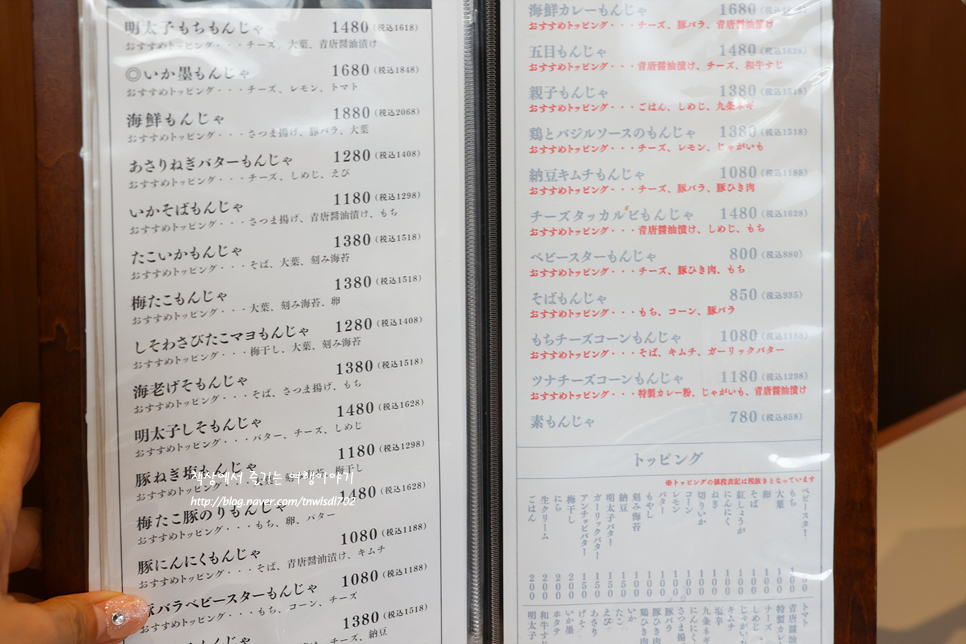 明太子もちもんじゃ 1480(税込1618)
おすすめトッピング・・・チーズ、大葉、青唐醤油漬け
◎いか墨もんじゃ 1680(税込1848)
おすすめトッピング・・・チーズ、レモン、トマト
海鮮もんじゃ 1880(税込2068)
おすすめトッピング・・・さつま揚げ、豚バラ、大葉
あさりねぎバターもんじゃ 1280(税込1408)
おすすめトッピング・・・チーズ、しめじ、えび
いかそばもんじゃ 1180(税込1298)
おすすめトッピング・・・さつま揚げ、青唐醤油漬け、もち
たこいかもんじゃ 1380(税込1518)
おすすめトッピング・・・そば、大葉、刻み海苔
梅たこもんじゃ 1380(税込1518)
おすすめトッピング・・・大葉、刻み海苔、卵
しそわさびたこマヨもんじゃ 1280(税込1408)
おすすめトッピング・・・梅干し、大葉、刻み海苔
海老げそもんじゃ 1380(税込1518)
おすすめトッピング・・・そば、さつま揚げ、もち
明太子しそもんじゃ 1480(税込1628)
おすすめトッピング・・・バター、チーズ、しめじ
豚ねぎ塩もんじゃ 1180(税込1298)
おすすめトッピング 海苔、梅干し
책상에서 즐기는 여행이야기
http://blog.naver.com/tnwlsdl702
梅たこ豚のりもんじゃ 1480(税込1628)
おすすめトッピング・・・もち、卵、バター
豚にんにくもんじゃ 1080(税込1188)
おすすめトッピング・・・そば、青唐醤油漬け、キムチ
豚バラベビースターもんじゃ 1080(税込1188)
おすすめトッピング・・・もち、コーン、チーズ
もんじゃ 1380(税込1518)
チーズ、納豆
海鮮カレーもんじゃ 1680
おすすめトッピング・・・チーズ、豚バラ、青唐醤油漬け
五目もんじゃ 1480(税込1628)
おすすめトッピング・・・青唐醤油漬け、チーズ、和牛すじ
親子もんじゃ 1380(税込1518)
おすすめトッピング・・・ごはん、しめじ、九条ネギ
鶏とバジルソースのもんじゃ 1380(税込1518)
おすすめトッピング・・・チーズ、レモン、じゃがいも
納豆キムチもんじゃ 1080(税込1188)
おすすめトッピング・・・チーズ、豚バラ、豚ひき肉
チーズタッカルビもんじゃ 1480(税込1628)
おすすめトッピング・・・青唐醤油漬け、しめじ、もち
ベビースターもんじゃ 800(税込880)
おすすめトッピング・・・チーズ、豚ひき肉、もち
そばもんじゃ 850(税込935)
おすすめトッピング・・・もち、コーン、豚バラ
もちチーズコーンもんじゃ 1080(税込1188)
おすすめトッピング・・・そば、キムチ、ガーリックバター
ツナチーズコーンもんじゃ 1180(税込1298)
おすすめトッピング・・・特製カレー粉、じゃがいも、青唐醤油漬け
素もんじゃ 780(税込858)
トッピング
※トッピングの値段表記は税抜きとなっています
ベビースター
もち 100
大葉 100
卵 100
そば 100
紅しょうが 100
にんにく 100
ねぎ 100
切りいか 100
コーン 100
レモン 100
バター 100
もやし 100
刻み海苔 100
納豆 100
明太子バター 150
ガーリックバター 150
アンチョビバター 150
梅干し 200
にら 200
生クリーム 200
ごはん 200
トマト
青唐醤油
チーズ
特製カレ
しめじ
じゃがい
キムチ
塩辛
九条ネ
にんにく
さつま揚
豚バラ
豚ひき肉
鶏ひき
いか
たこ
えび
あさり
げそ
いか墨
ホタテ
和牛す
明太子